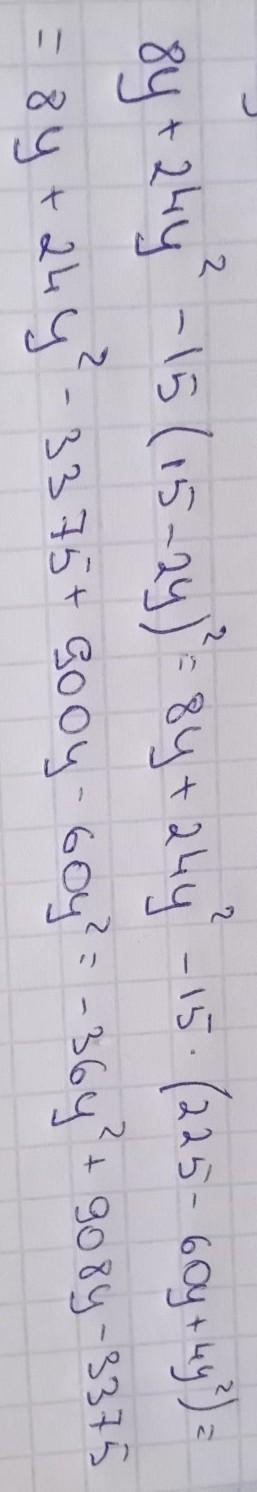 8y + 24y² - 15(15 - 2y)² = 8y + 24y² - 15 · (225 - 60y + 4y²) =
= 8y + 24y² - 3375 + 900y - 60y² = -36y² + 908y - 3375